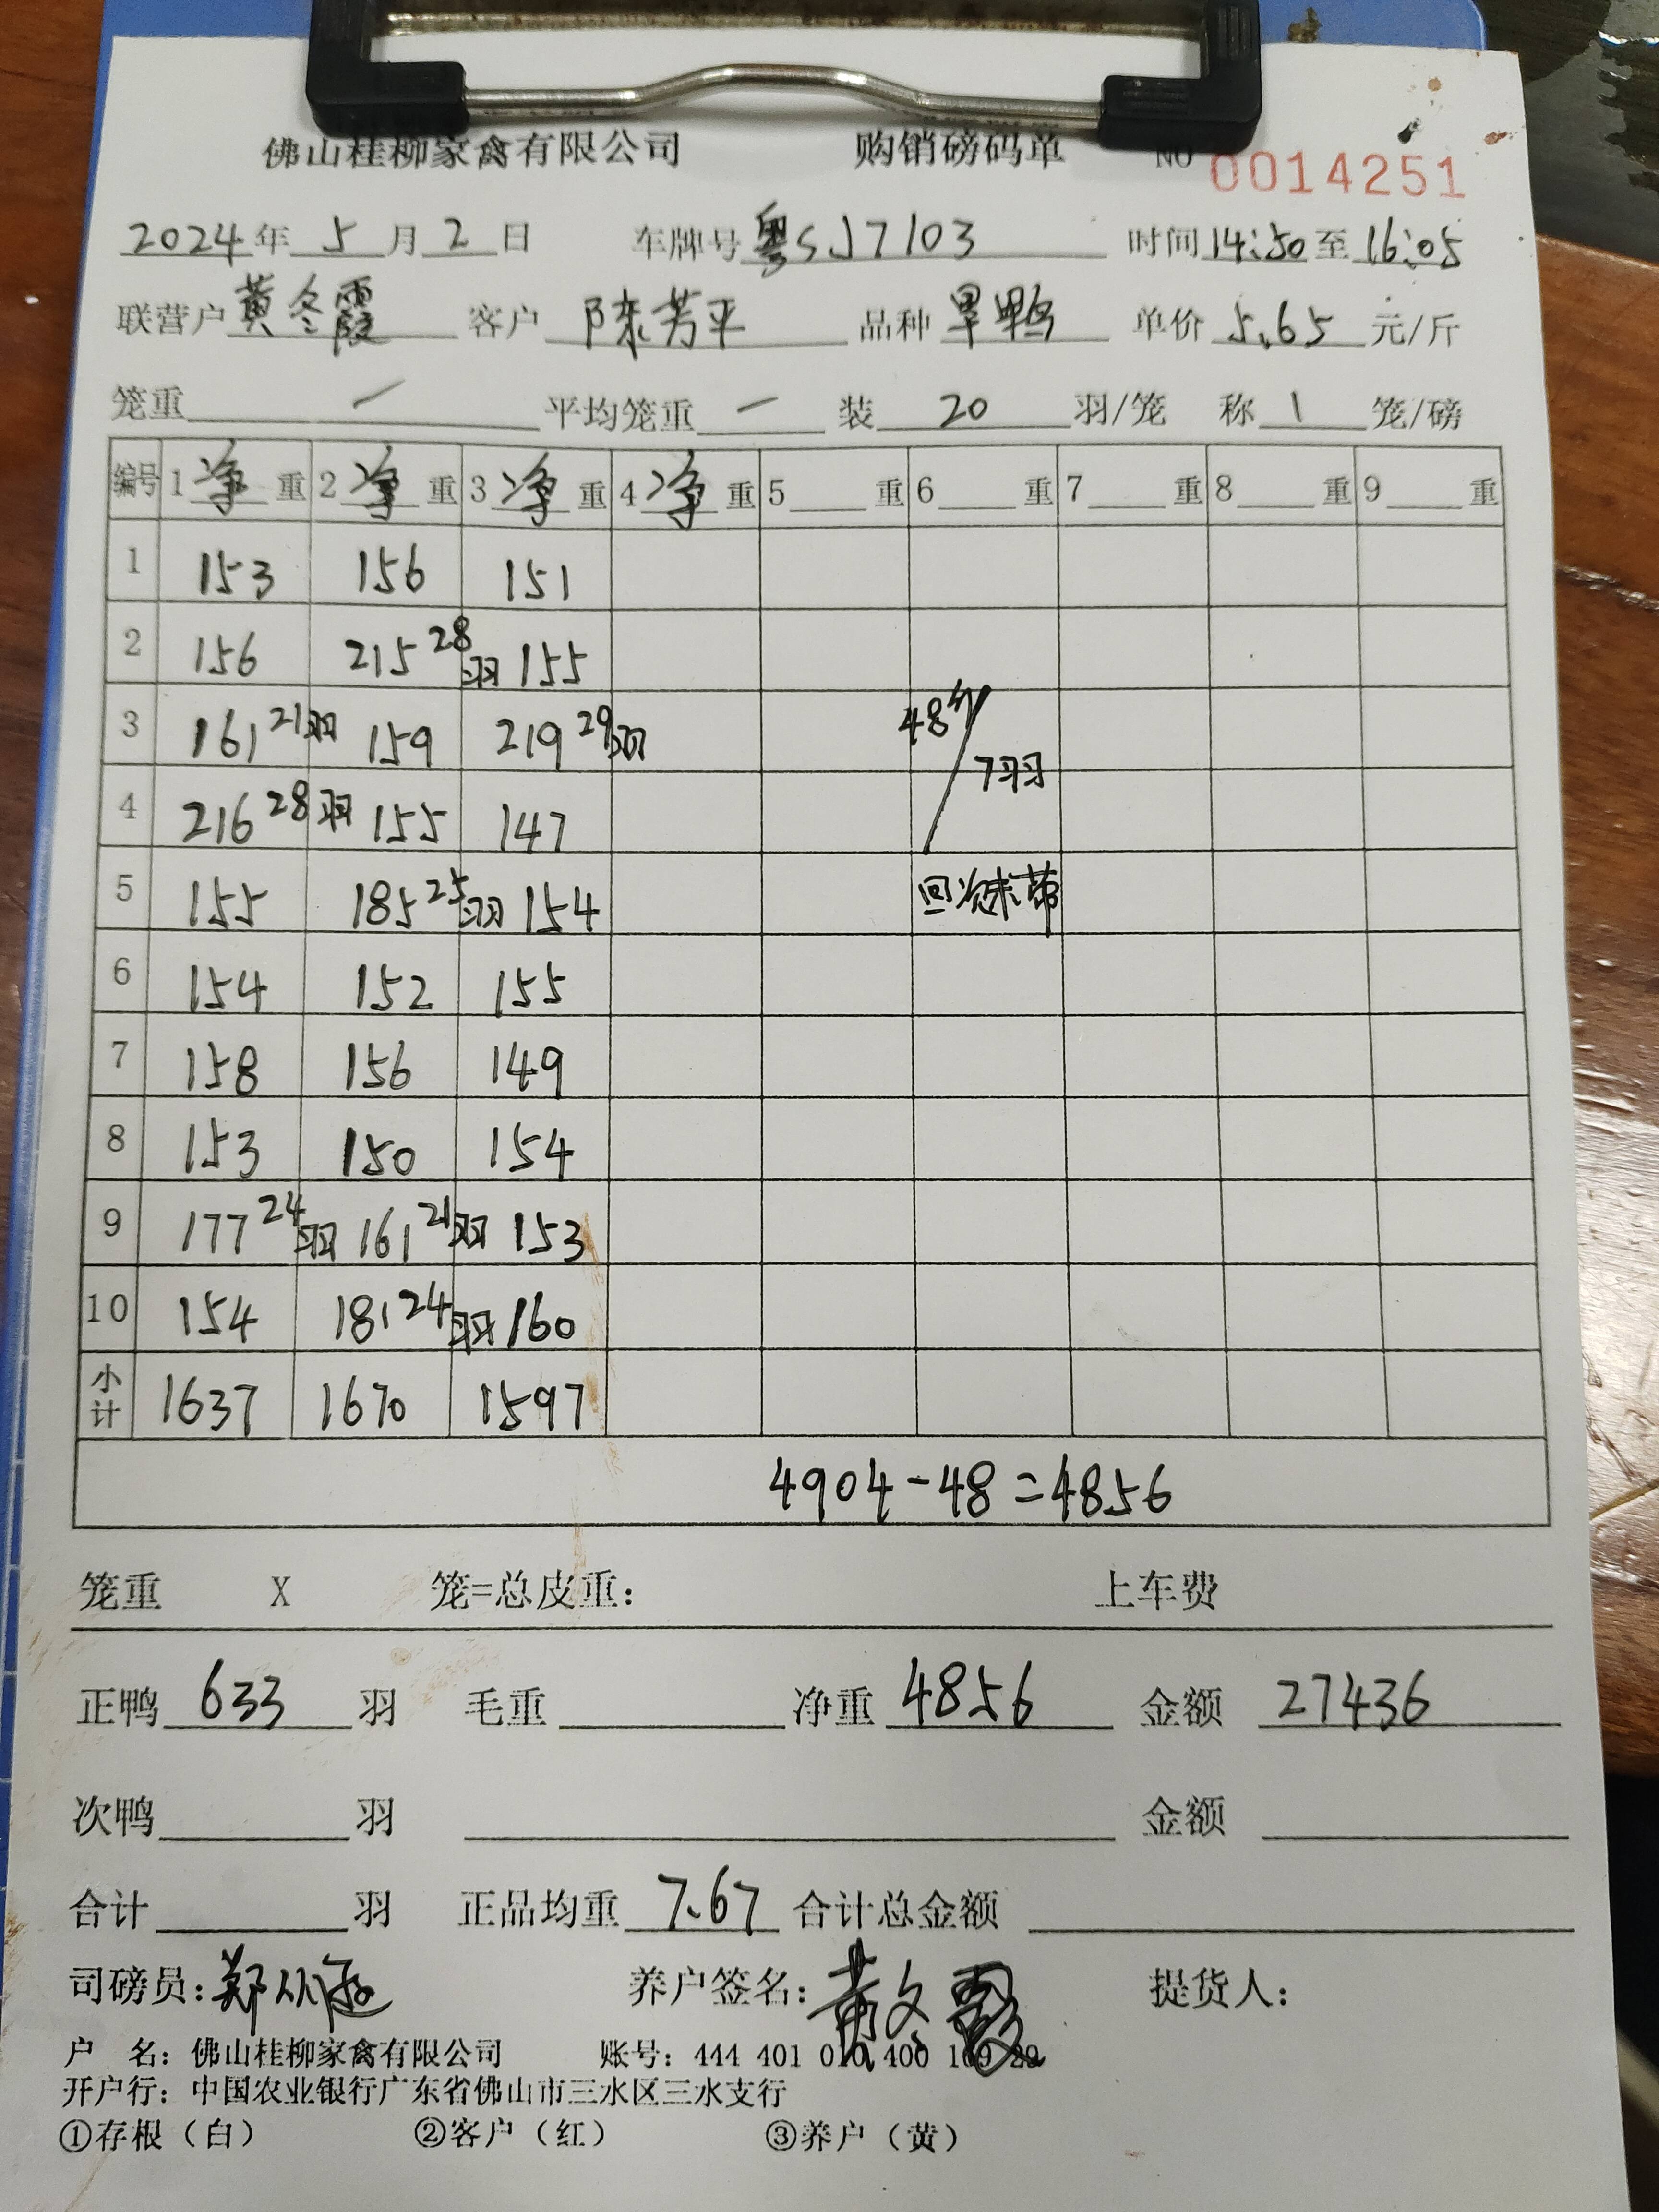 佛山桂柳家禽有限公司 购销磅码单 NO 0014251
2024年 5月 2日 车牌号 粤SJ7103 时间 14:50 至 16:05
联营户 黄冬霞 客户 陈芳平 品种 旱鸭 单价 5.65 元/斤
笼重 一 平均笼重 一 装 20 羽/笼 称 1 笼/磅
编号 1净重 2净重 3净重 4净重 5重 6重 7重 8重 9重
1 153 156 151
2 156 215 28羽 155
3 161 21羽 159 219 29羽 48斤
4 216 28羽 155 147 7羽
5 155 185 25羽 154 回次未带
6 154 152 155
7 158 156 149
8 153 150 154
9 177 24羽 161 21羽 153
10 154 181 24羽 160
小计 1637 1670 1597
4904-48=4856
笼重 X 笼=总皮重: 上车费
正鸭 633 羽 毛重 净重 4856 金额 27436
次鸭 羽 金额
合计 羽 正品均重 7.67 合计总金额
司磅员: 郑 养户签名: 黄冬霞 提货人:
户 名: 佛山桂柳家禽有限公司 账号: 444 401 010 400 169 29
开户行: 中国农业银行广东省佛山市三水区三水支行
①存根（白） ②客户（红） ③养户（黄）